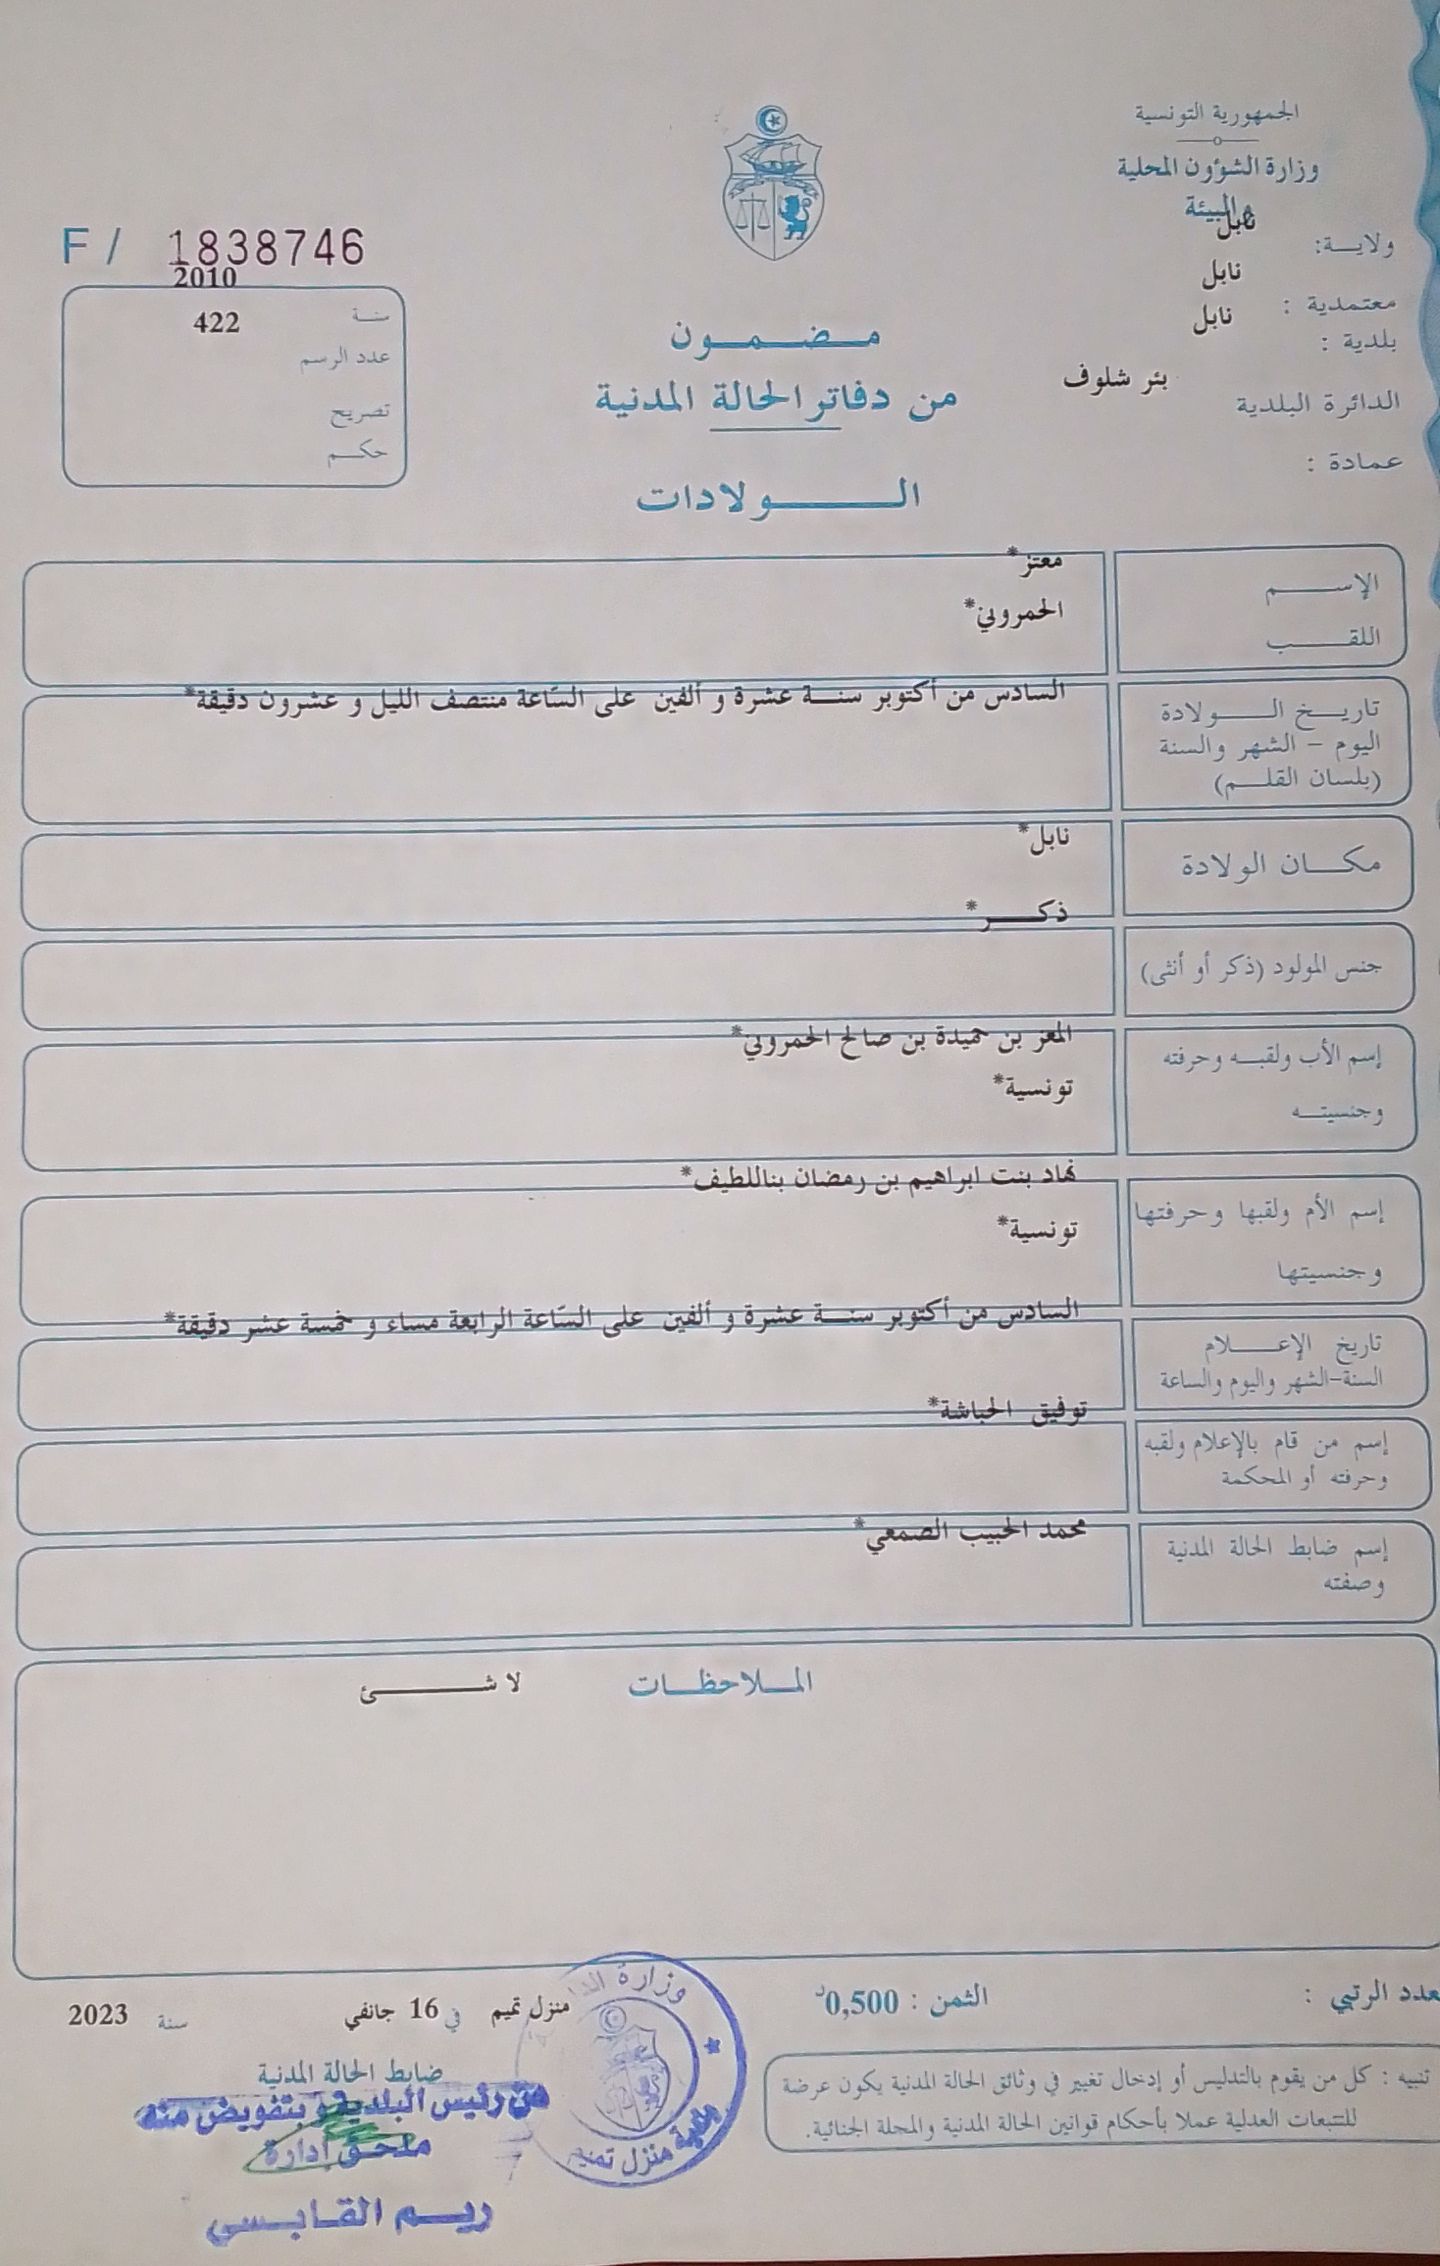 الجمهورية التونسية
وزارة الشؤون المحلية
والبيئة
ولايـــة: نابل
معتمدية : نابل
بلدية : نابل
الدائرة البلدية بئر شلوف
عمادة :
F / 1838746
سنــة 2010
عدد الرسم 422
تصريح
حكـــم
مـضـمـون
من دفاتر الحالة المدنية
الـــولادات
الإســـم معتز*
اللقـــب الحمروني*
تاريـــخ الـــولادة السادس من أكتوبر سنــة عشرة و ألفين على السّاعة منتصف الليل و عشرون دقيقة*
اليوم - الشهر والسنة
(بلسان القلـــم)
مكـــان الولادة نابل*
جنس المولود (ذكر أو أنثى) ذكـــر*
إسم الأب ولقبــه وحرفته المعز بن حميدة بن صالح الحمروني*
وجنسيتــه تونسية*
إسم الأم ولقبها وحرفتها نهاد بنت ابراهيم بن رمضان بناللطيف*
وجنسيتها تونسية*
تاريخ الإعـــلام السادس من أكتوبر سنــة عشرة و ألفين على السّاعة الرابعة مساء و خمسة عشر دقيقة*
السنة-الشهر واليوم والساعة
إسم من قام بالإعلام ولقبه توفيق الحباشة*
وحرفته أو المحكمة
إسم ضابط الحالة المدنية محمد الحبيب الصمعي*
وصفته
المــلاحظــات لا شـــئ
عدد الرتبي :
الثمن : 0,500د
منزل تميم في 16 جانفي سنة 2023
تنبيه : كل من يقوم بالتدليس أو إدخال تغيير في وثائق الحالة المدنية يكون عرضة
للتتبعات العدلية عملا بأحكام قوانين الحالة المدنية والمجلة الجنائية.
ضابط الحالة المدنية
عن رئيس البلدية وبتفويض منه
ملحق إدارة
ريــم القـابـسي
وزارة
بلدية منزل تميم